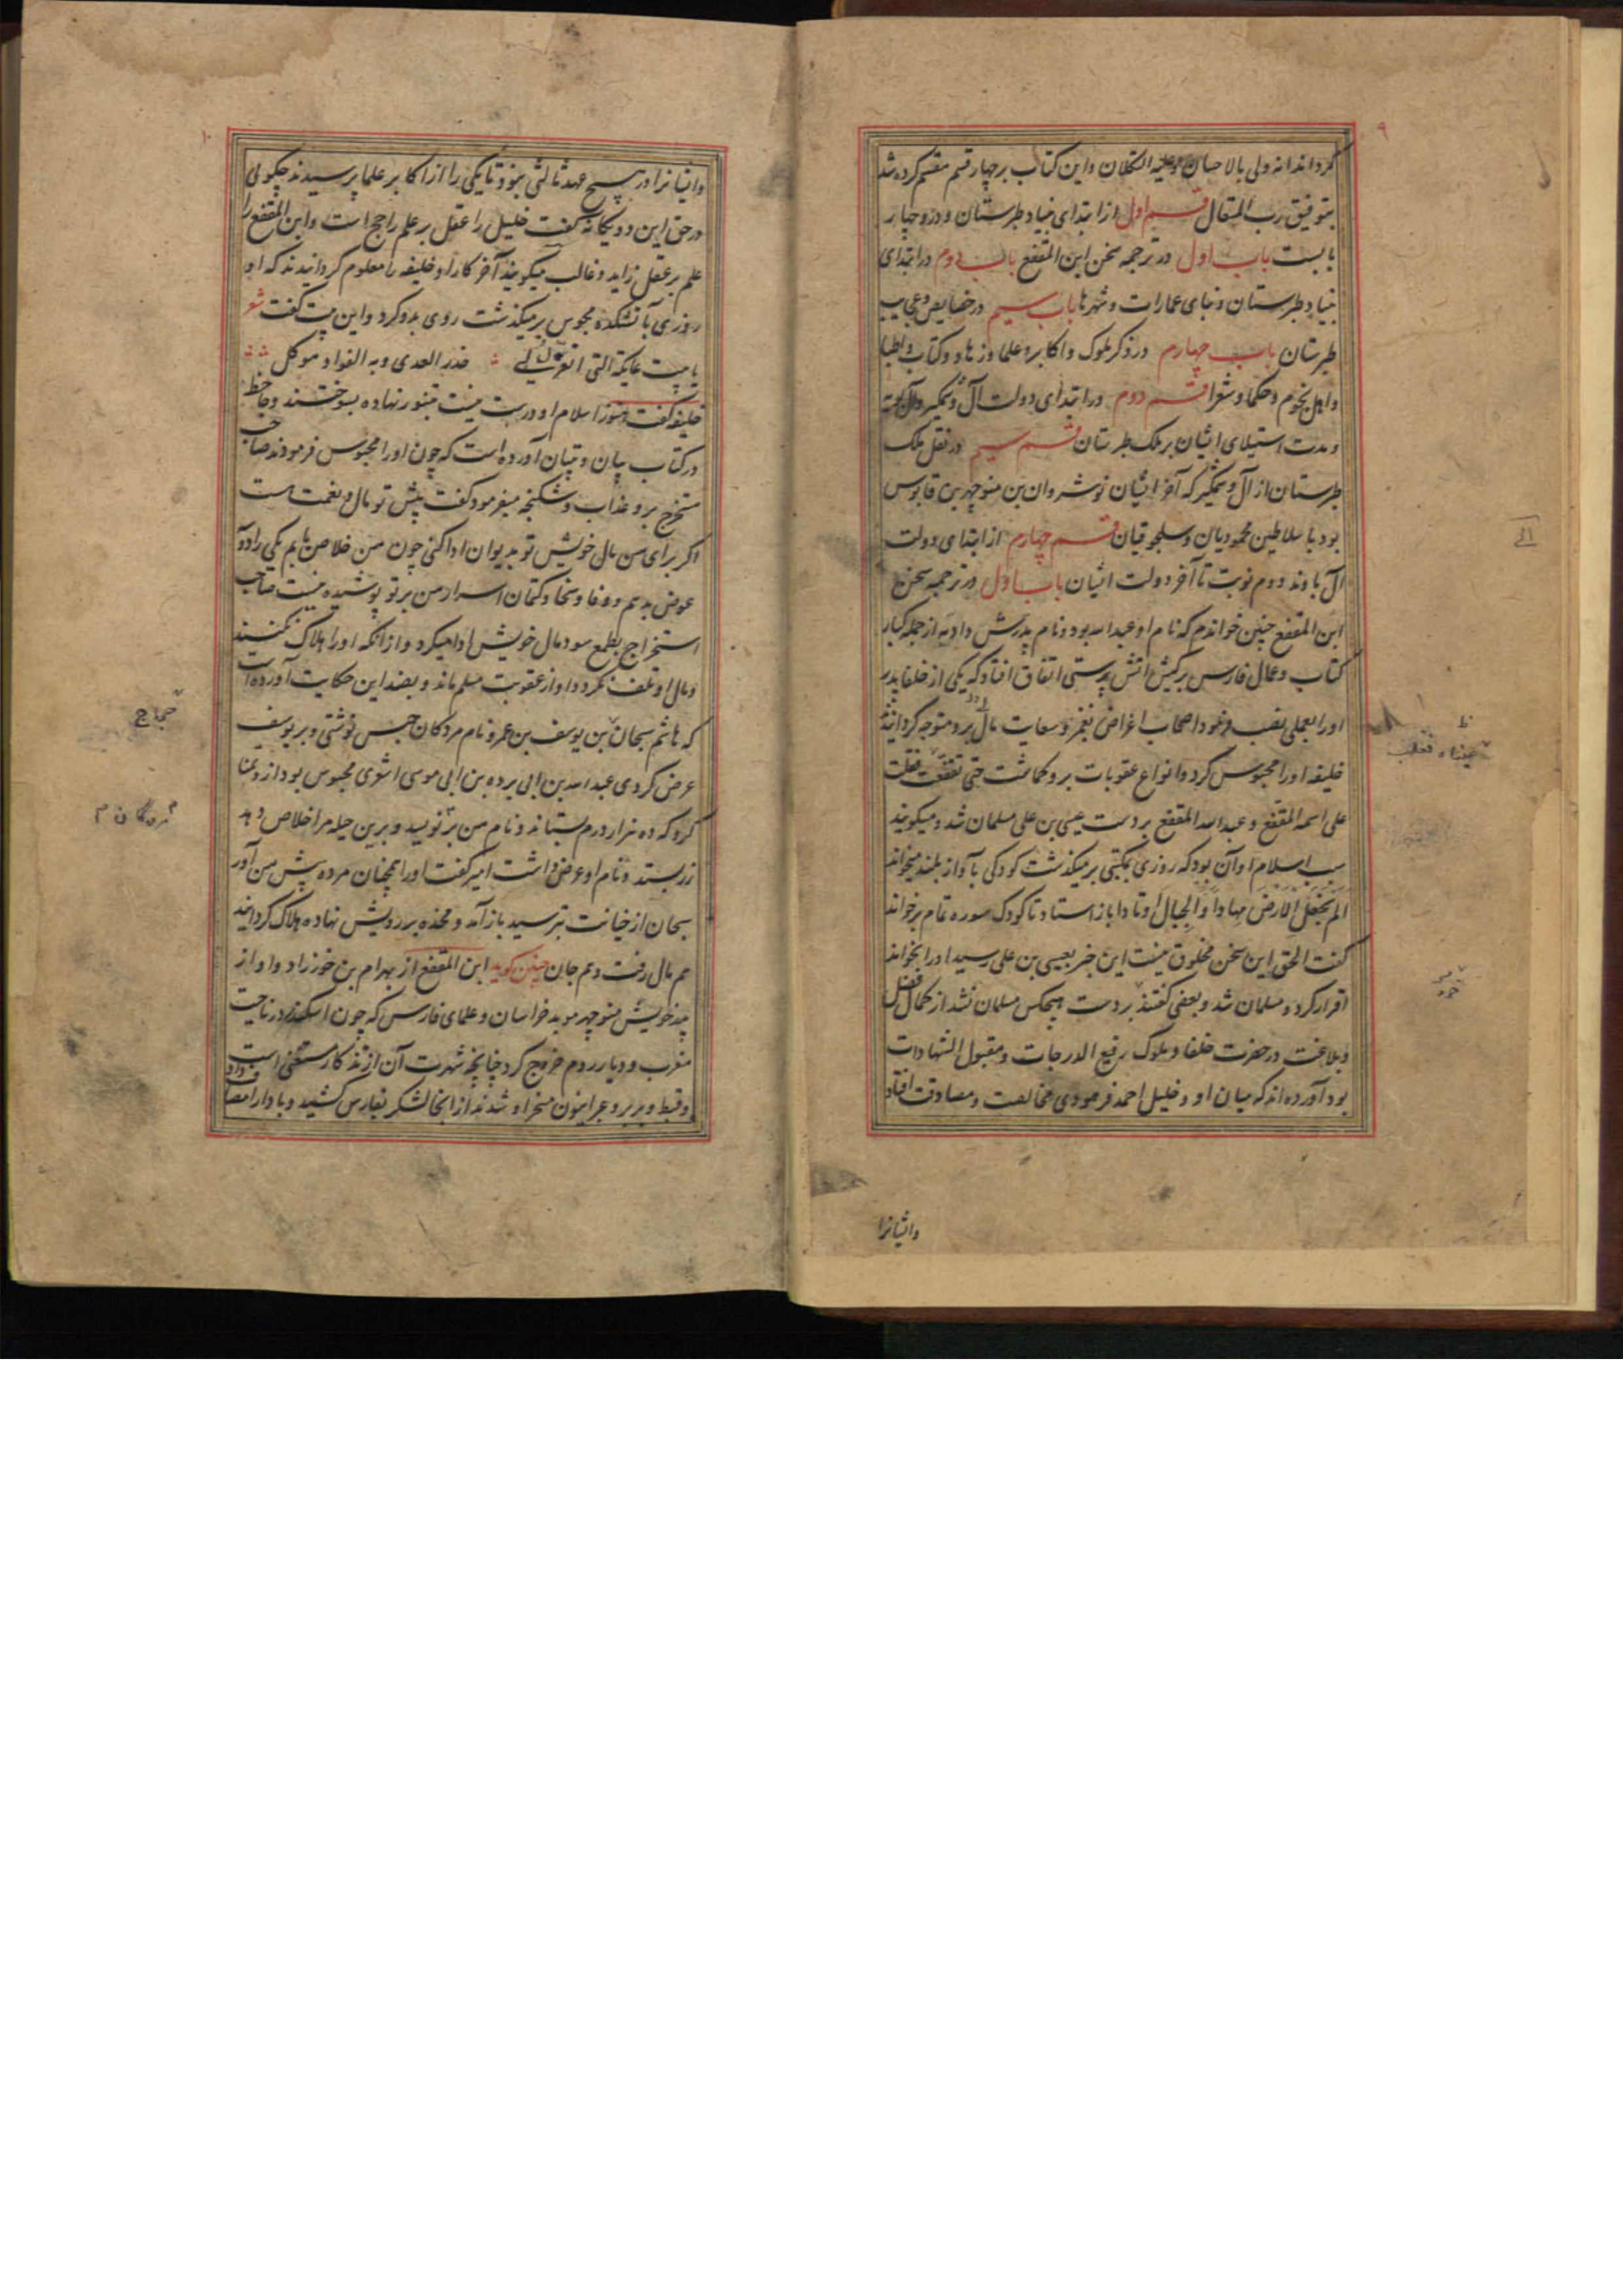 ۹
گرداند انه ولی بالاحسان وعلیه التکلان واین کتاب برچهار قسم مقسم کرده شد
بتوفیق رب المتعال قسم اول از ابتدای بنیاد طبرستان و درو چهار
بابست باب اول در ترجمه سخن ابن المقفع باب دوم در ابتدای
بنیاد طبرستان و بنای عمارات و شهرها باب سیم در خصایص و عجایب
طبرستان باب چهارم در ذکر ملوک و اکابر و علما و زهاد و کتاب و اطبا
و اهل نجوم و حکما و شعرا قسم دوم در ابتدای دولت آل وشمگیر و آل بویه
و مدت استیلای ایشان بر ملک طبرستان قسم سیم در نقل ملک
طبرستان از آل وشمگیر که آخر ایشان نوشروان بن منوچهر بن قابوس
بود با سلاطین محمودیان و سلجوقیان قسم چهارم از ابتدای دولت
آل باوند دوم نوبت تا آخر دولت ایشان باب اول در ترجمه سخن
ابن المقفع چنین خواندم که نام او عبدالله بود و نام پدرش دادبه از جمله کبار
کتاب و عمال فارس بر کیش آتش پرستی اتفاق افتاد که یکی از خلفا پدر
اورا بعملی نصب فرمود اصحاب اغراض بغمز و سعایت مال برو متوجه گردانیدند
خلیفه اورا محبوس کرد و انواع عقوبات برو گماشت حتی تقفعت فغلب
علی اسمه المقفع و عبدالله المقفع بر دست عیسی بن علی مسلمان شد و میگویند
سبب اسلام او آن بود که روزی بمکتبی برمیگذشت کودکی بآواز بلند میخواند
الم نجعل الارض مهادا والجبال اوتادا باز استاد تا کودک سوره تمام برخواند
گفت الحق این سخن مخلوق نیست این خبر بعیسی بن علی رسید اورا بخواند
اقرار کرد و مسلمان شد و بعضی گفتند بر دست هیچکس مسلمان نشد از کمال فضل
و بلاغت در حضرت خلفا و ملوک رفیع الدرجات و مقبول الشهادات
بود آورده اند که میان او و خلیل احمد فرهودی مخالصت و مصادقت افتاد
وایشانرا
۱۰
وایشانرا در هیچ عهد ثالثی نبود تا یکی را از اکابر علما پرسیدند چگوئی
در حق این دو یگانه گفت خلیل را عقل بر علم راجح است و ابن المقفع را
علم بر عقل زاید و غالب میگویند آخر کار او خلیفه را معلوم گردانیدند که او
روزی بآتشکده مجوس برمیگذشت روی بدو کرد و این بیت گفت شعر
یا بیت عاتکة التی اتعزل حذر العدی وبه الفواد موکل
خلیفه گفت هنوز اسلام او درست نیست بتنور نهاده بسوختند و جاحظ
در کتاب بیان و تبیان آورده است که چون اورا محبوس فرمودند صاحب
مستخرج برو عذاب و شکنجه میفرمود گفت پیش تو مال و نعمت است
اگر برای من مال خویش تو بدیوان ادا کنی چون من خلاص یابم یکی را دو
عوض بدهم و وفا و سخا و کتمان اسرار من بر تو پوشیده نیست صاحب
استخراج بطمع سود مال خویش ادا میکرد و از آنکه اورا هلاک نکنند
و مال او تلف نگردد او از عقوبت مسلم ماند و بضد این حکایت آورده است
که هاشم سجان بن یوسف بن عمر و نام مردگان حبس نوشتی و بر یوسف
حجاج
عرض کردی عبدالله بن ابی برده بن ابی موسی اشعری محبوس بود ازو تمنا
مردگان م
کرد که ده هزار درم بستاند و نام من بر نویسد و برین حیله مرا خلاص دهد
زر بستد و نام او عرض داشت امیر گفت اورا همچنان مرده پیش من آور
سجان از خیانت بترسید باز آمد و مخده بر رویش نهاده هلاک گردانید
هم مال رفت و هم جان چنین گوید ابن المقفع از بهرام بن خورزاد و او از
پدر خویش منوچهر موبد خراسان و علمای فارس که چون اسکندر در ناحیت
مغرب و دیار روم خروج کرد چنانچه شهرت آن از تذکار مستغنی است
و قبط و بربر و عبرانیون مسخر او شدند از آنجا لشکر بفارس کشید و با دارا مصاف داد